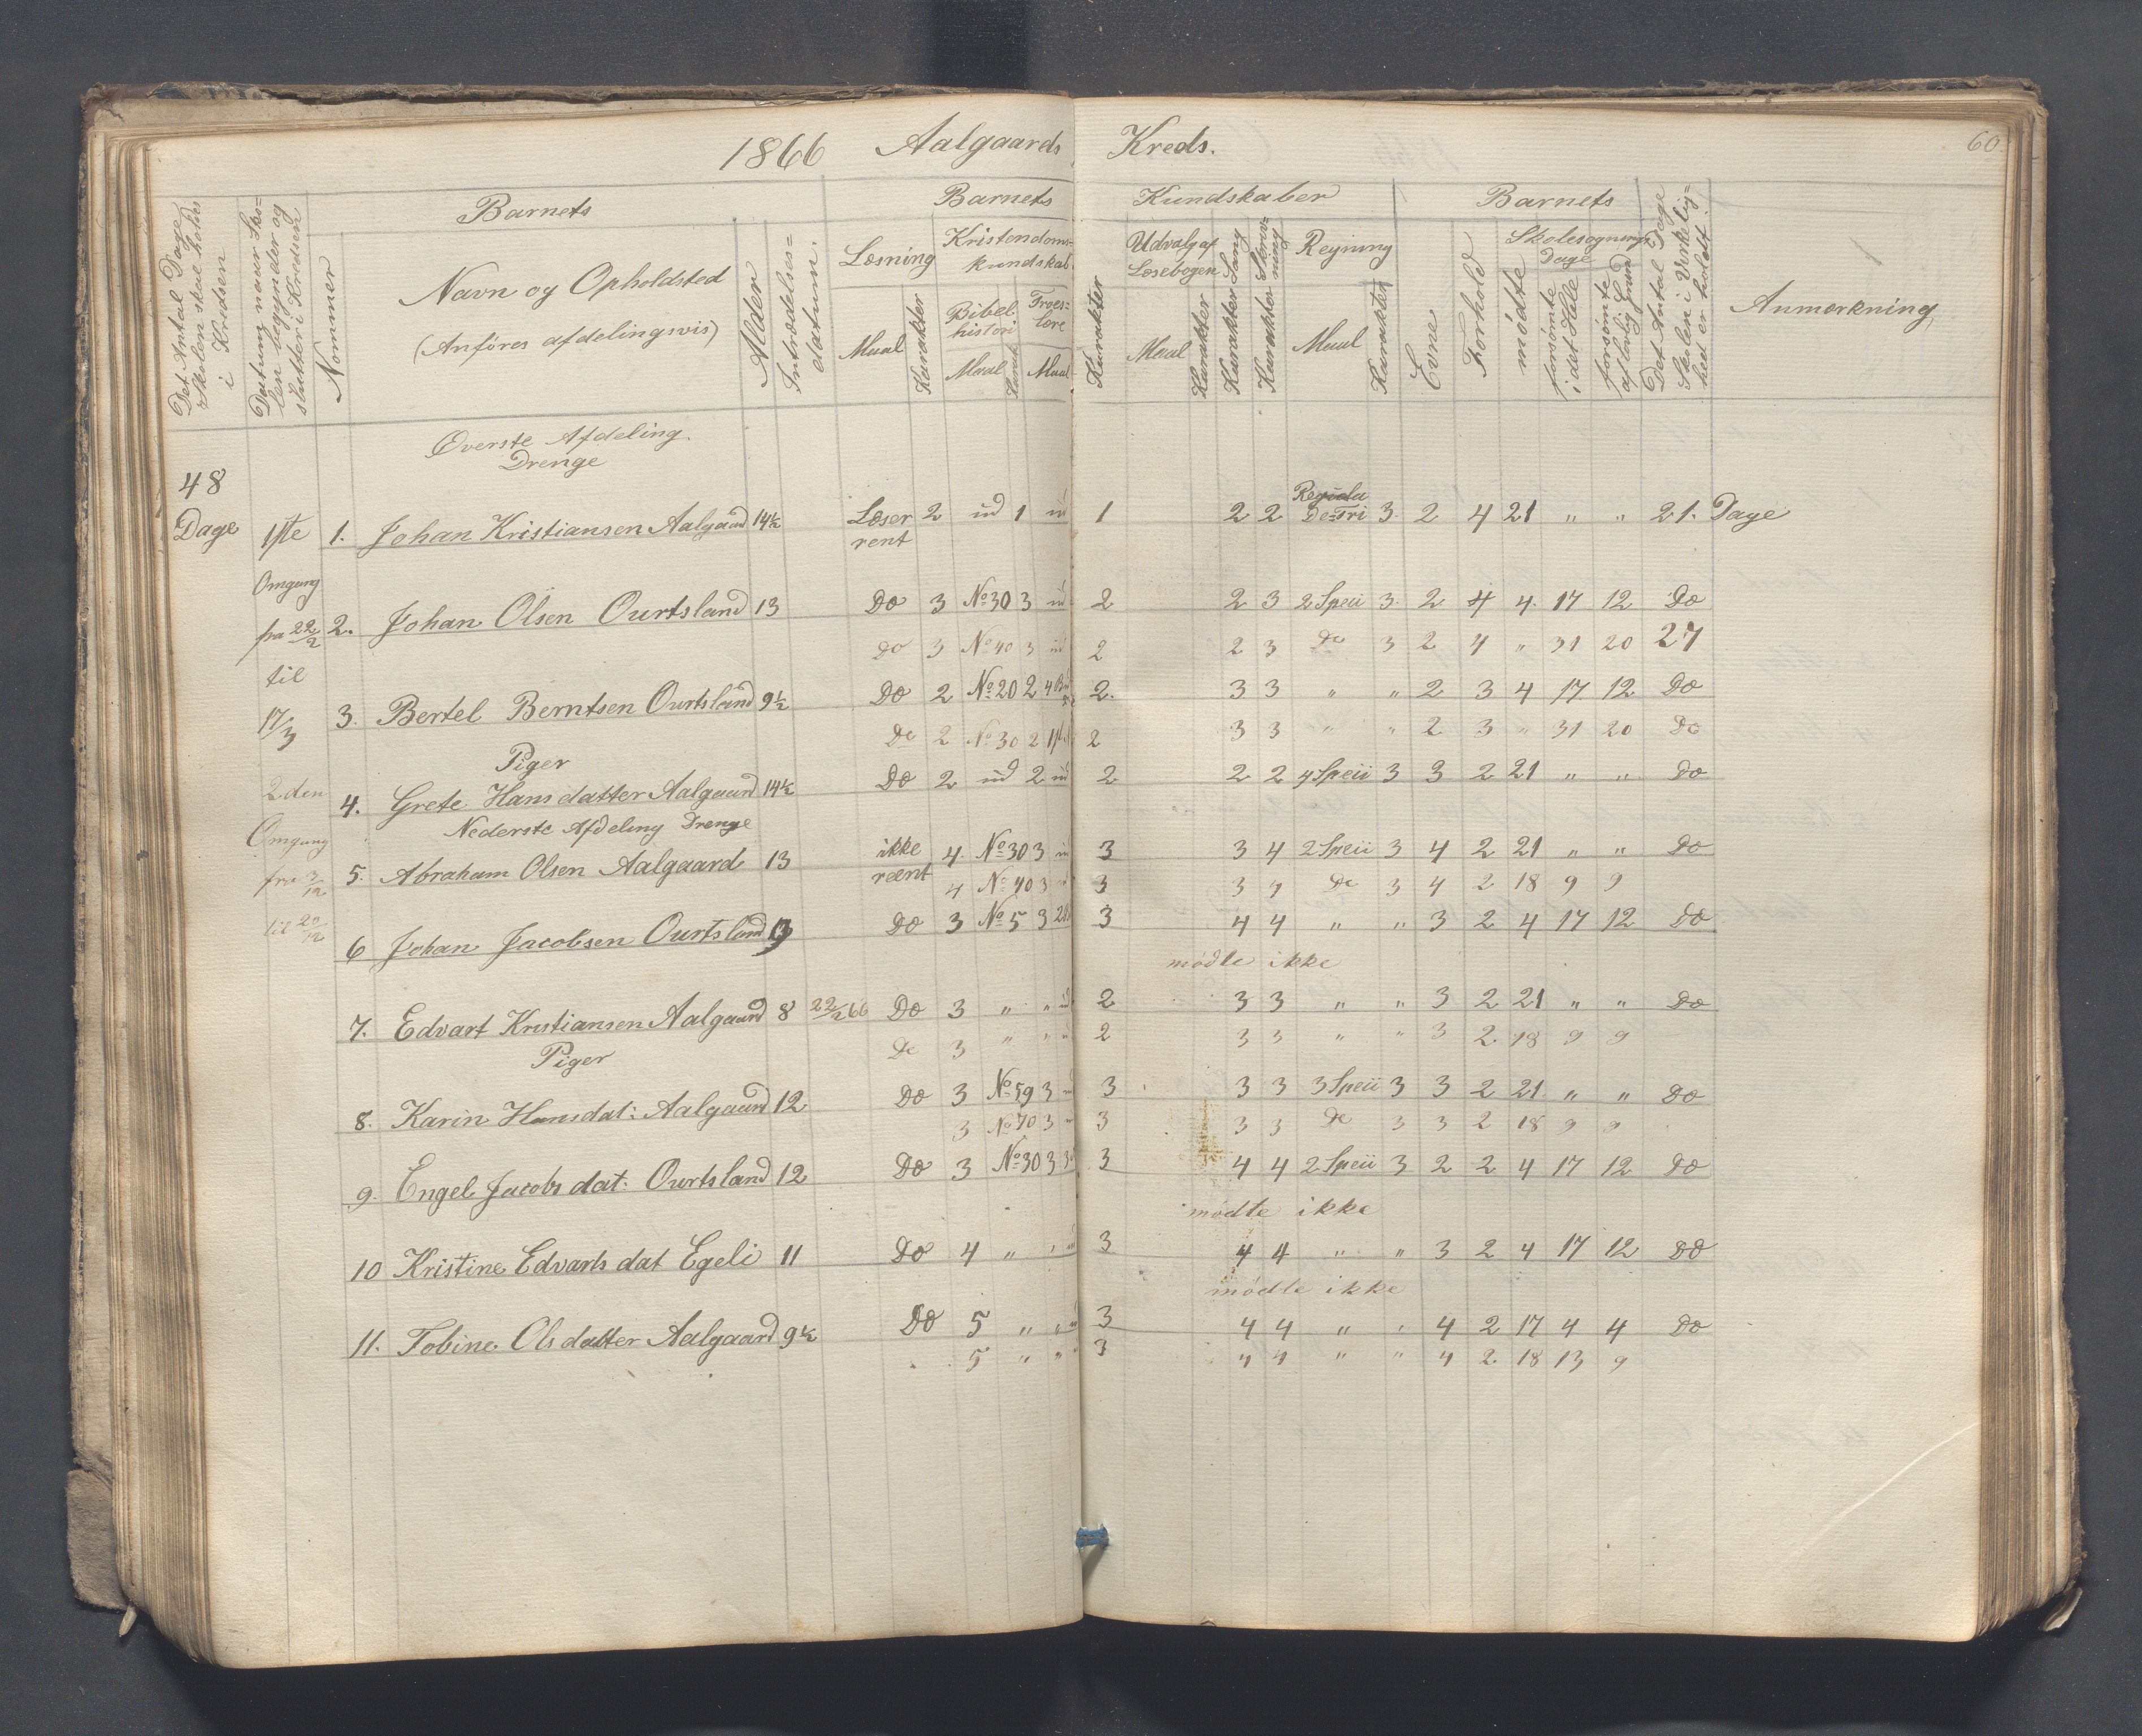 1866 Aalgaards Kreds. 60
Det Antal Dage Skolen skal holdes i Kredsen
Datum naar Skolen begynder og slutter i Kredsen
Nommer
Barnets
Navn og Opholdsted
(Anføres afdelingsvis)
Alder
Intrædelsesdatum.
Barnets Kundskaber
Læsning
Maal
Karakter
Kristendomskundskab
Bibelhistori
Maal
Karak
Troeslære
Maal
Karakter
Udvalg af Læsebogen
Maal
Karakter
Sang
Karakter
Skrivning
Karakter
Regning
Maal
Karakter
Barnets
Evne
Forhold
Skolesøgnings Dage
mødte
forsømte i det Hele
forsømte af lovlig Grund
Det Antal Dage Skolen i Virkelighed er holdt
Anmærkning
Øverste Afdeling.
Drenge
48
Dage 1ste 1. Johan Kristiansen Aalgaard 14½ Læser rent 2 ud 1 ud 1 2 2 De Tri 3 2 4 21 " " 21. Dage
Omgang
fra 22/2 2. Johan Olsen Ourtsland 13 Do 3 No 30 3 ud 2 2 3 2 Speii 3 2 4 4 17 12 Do
Do 3 No 40 3 ud 2 2 3 Do 3 2 4 " 31 20 27
til
17/3 3. Bertel Berntsen Ourtsland 9½ Do 2 No 20 2 2. 3 3 " " 2 3 4 17 12 Do
Do 2 No 30 2 2 3 3 " " 2 3 " 31 20 Do
Piger
2den 4. Grete Hansdatter Aalgaard 14½ Do 2 ud 2 ud 2 2 2 4 Speii 3 3 2 21 " " Do
Nederste Afdeling Drenge
Omgang
fra 3/12 5. Abraham Olsen Aalgaard 13 ikke reent 4. No 30 3 3 3 4 2 Speii 3 4 2 21 " " Do
4 No 40 3 3 3 4 Do 3 4 2 18 9 9
til 22/12 6 Johan Jacobsen Ourtsland Do 3 No 5 3 3 4 4 " " 3 2 4 17 12 Do
mødte ikke
7. Edvart Kristiansen Aalgaard 8 22/2 66 Do 3 " " ud 2 3 3 " " 3 2 21 " " Do
Do 3 " " " 2 3 3 " " 3 2 18 9 9
Piger
8. Karin Hansdat: Aalgaard 12 Do 3 No 59 3 3 3 3 3 Speii 3 3 2 21 " " Do
3 No 70 3 3 3 3 Do 3 3 2 18 9 9
9. Engel Jacobsdat: Ourtsland 12 Do 3 No 30 3 3 4 4 2 Speii 3 2 2 4 17 12 Do
mødte ikke
10 Kristine Edvarts dat Egeli 11 Do 4 " " 3 4 4 " " 3 2 4 17 12 Do
mødte ikke
11. Tobine Olsdatter Aalgaard 9½ Do 5 " " 3 4 4 " " 4 2 17 4 4 Do
5 " " 3 4 4 " " 4 2 18 13 9